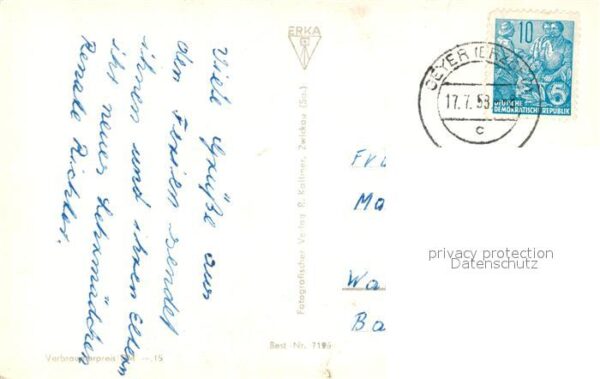 Viele Grüße aus
den Ferien sendet
ihnen und ihren Eltern
ihr neues Lehrmädchen
Renate Richter.
Verbraucherpreis — .15
ERKA
Fotografischer Verlag R. Kallmer, Zwickau (Sa.)
Best Nr. 7195
10
5
DEUTSCHE
DEMOKRATISCHE REPUBLIK
GEYER (ERZGEB)
17.7.58
c
Ma
Wa
Ba
privacy protection
Datenschutz